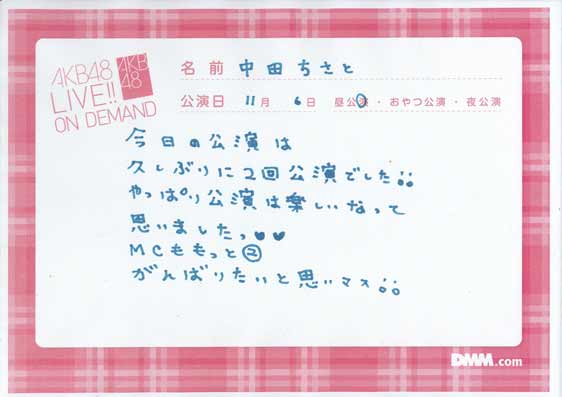 AKB48
LIVE!!
ON DEMAND
AKB
48
名前 中田ちさと
公演日 11月 6日 昼公演・おやつ公演・夜公演
今日の公演は
久しぶりに2回公演でした
やっぱり公演は楽しいなって
思いましたっ♥♥
MCももっと②
がんばりたいと思いマス
DMM.com